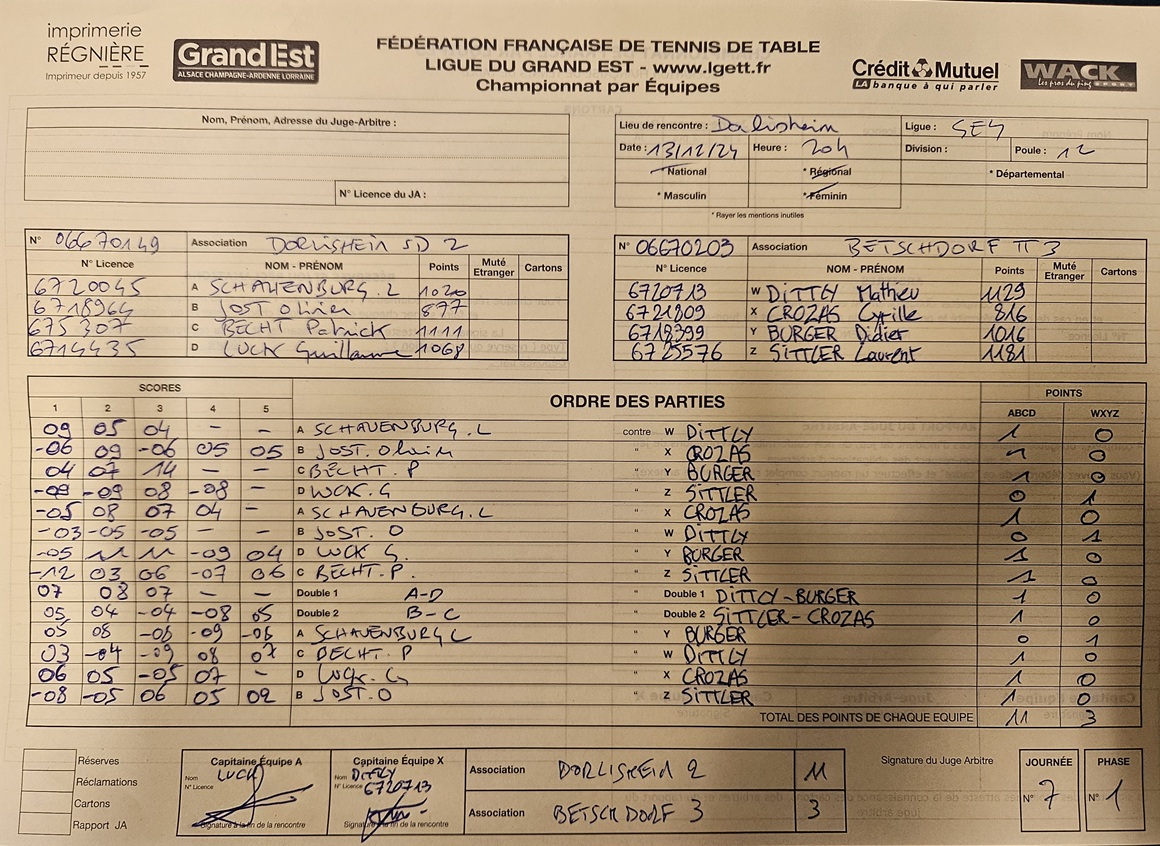 imprimerie
RÉGNIÈRE
Imprimeur depuis 1957
Grand Est
ALSACE CHAMPAGNE-ARDENNE LORRAINE
FÉDÉRATION FRANÇAISE DE TENNIS DE TABLE
LIGUE DU GRAND EST - www.lgett.fr
Championnat par Équipes
Crédit Mutuel
LA banque à qui parler
WACK
Les pros du ping SPORT
Nom, Prénom, Adresse du Juge-Arbitre :
N° Licence du JA :
Lieu de rencontre : Dorlisheim Ligue : GES
Date : 13/12/24 Heure : 20h Division : Poule : 12
* National * Régional * Départemental
* Masculin * Féminin
* Rayer les mentions inutiles
N° 06670149 Association DORLISHEIM SD 2
N° Licence NOM - PRÉNOM Points Muté Etranger Cartons
6720045 A SCHAUENBURG. L 1020
6718964 B JOST Olivier 877
675307 C BECHT Patrick 1111
6714435 D LUCK Guillaume 1068
N° 06670203 Association BETSCHDORF TT 3
N° Licence NOM - PRÉNOM Points Muté Etranger Cartons
6720713 W DITTLY Mathieu 1129
6721809 X CROZAS Cyrille 816
6718399 Y BURGER Didier 1016
6725576 Z SITTLER Laurent 1181
SCORES ORDRE DES PARTIES POINTS
1 2 3 4 5 ABCD WXYZ
09 05 04 - - A SCHAUENBURG. L contre W DITTLY 1 0
-06 09 -06 05 05 B JOST. Olivier " X CROZAS 1 0
04 07 14 - - C BECHT. P " Y BURGER 1 0
-09 -09 08 -08 - D LUCK. G " Z SITTLER 0 1
-05 08 07 04 - A SCHAUENBURG. L " X CROZAS 1 0
-03 -05 -05 - - B JOST. O " W DITTLY 0 1
-05 11 11 -09 04 D LUCK G. " Y BURGER 1 0
-12 03 06 -07 06 C BECHT. P. " Z SITTLER 1 0
07 08 07 - - Double 1 A-D " Double 1 DITTLY-BURGER 1 0
05 04 -04 -08 05 Double 2 B-C " Double 2 SITTLER-CROZAS 1 0
05 08 -06 -09 -06 A SCHAUENBURG L " Y BURGER 0 1
03 -04 -09 08 07 C BECHT. P " W DITTLY 1 0
06 05 -05 07 - D LUCK. G " X CROZAS 1 0
-08 -05 06 05 02 B JOST. O " Z SITTLER 1 0
TOTAL DES POINTS DE CHAQUE EQUIPE 11 3
Réserves
Réclamations
Cartons
Rapport JA
Capitaine Équipe A
Nom LUCK
N° Licence
Signature à la fin de la rencontre
Capitaine Équipe X
Nom DITTLY
N° Licence 6720713
Signature à la fin de la rencontre
Association DORLISHEIM 2 11
Association BETSCHDORF 3 3
Signature du Juge Arbitre
JOURNÉE
N° 7
PHASE
N° 1